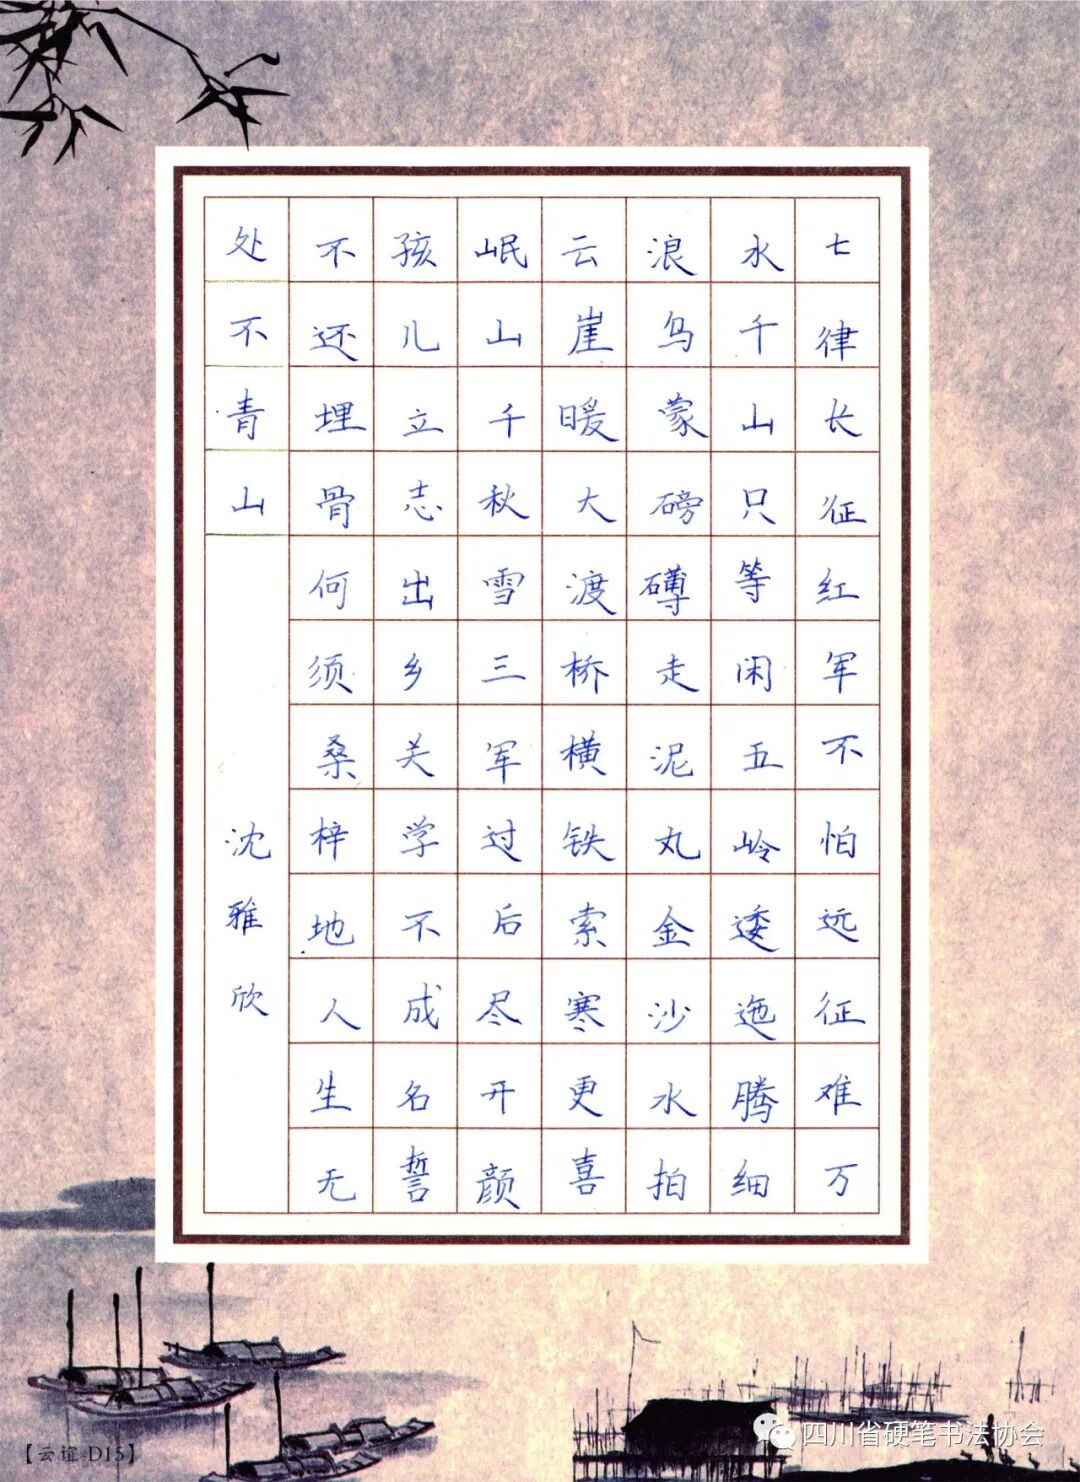 七律长征红军不怕远征难万
水千山只等闲五岭逶迤腾细
浪乌蒙磅礴走泥丸金沙水拍
云崖暖大渡桥横铁索寒更喜
岷山千秋雪三军过后尽开颜
孩儿立志出乡关学不成名誓
不还埋骨何须桑梓地人生无
处不青山
沈雅欣
【云谊-D15】
四川省硬笔书法协会